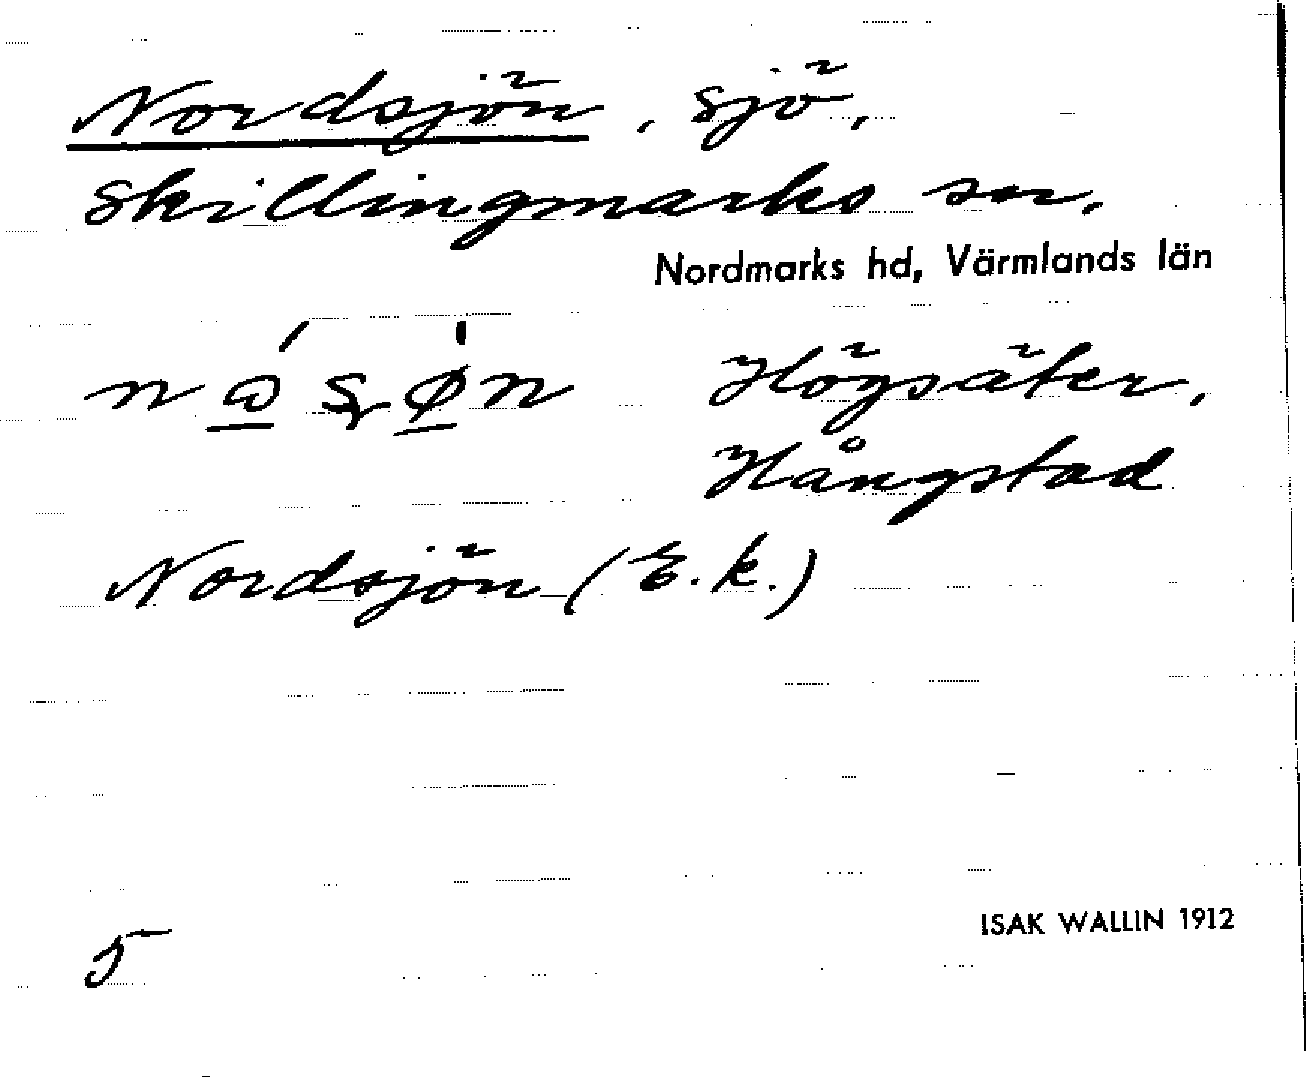 Nordsjön, sjö,
Skillingmarks sn.
Nordmarks hd, Värmlands län
Högsäter,
Hångstad
Nordsjön (E.k.)
5
ISAK WALLIN 1912